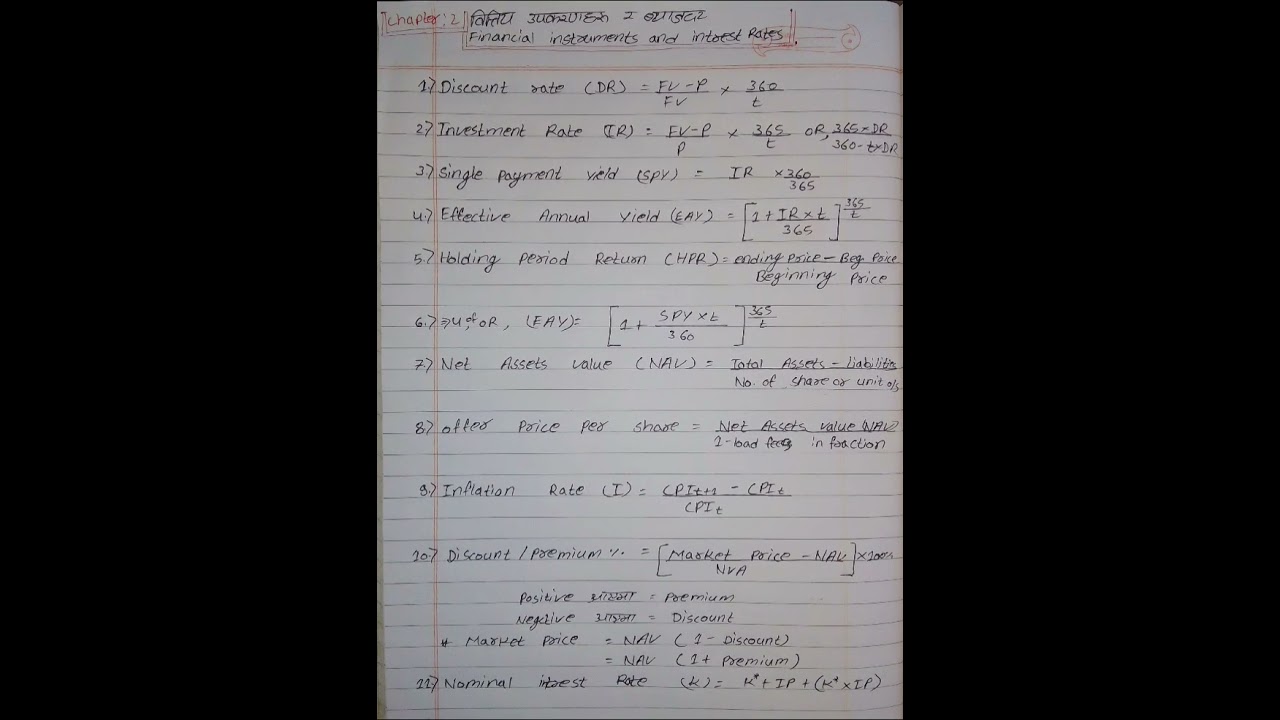 Chapter: 2 वित्तिय उपकरणहरु र ब्याजदर
Financial instruments and intrest Rates.
1.) Discount rate (DR) = FV-P/FV × 360/t
2.) Investment Rate (IR) = FV-P/P × 365/t OR, 365×DR/360-t×DR
3.) Single payment yield (SPY) = IR × 360/365
4.) Effective Annual Yield (EAY) = [1 + IR×t/365]^365/t
5.) Holding Period Return (HPR) = ending price - Beg Price/Beginning Price
6.) ⇒ 4 of OR, (EAY)= [1 + SPY×t/360]^365/t
7.) Net Assets value (NAV) = Total Assets - Liabilities/No. of share or unit o/s
8.) offer Price per share = Net Assets value (NAV)/1-load fees in fraction
9.) Inflation Rate (I) = CPIt+1 - CPIt/CPIt
10.) Discount / Premium % = [Market Price - NAV/NVA] ×100%
Positive आएमा = Premium
Negative आएमा = Discount
# Market Price = NAV (1 - Discount)
= NAV (1 + Premium)
11.) Nominal intrest Rate (K) = K* + IP + (K* × IP)